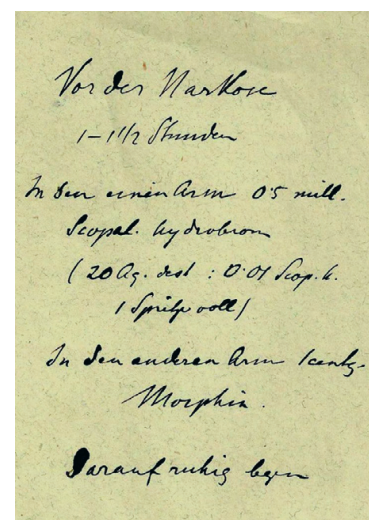 Vor der Narkose
1-1 1/2 Stunden
In den einen Arm 0.5 mill.
Scopol. hydrobrom
(20 Aq. dest : 0.01 Scop. h.
1 Spritze voll)
In den anderen Arm 1 centg.
Morphin.
Darauf ruhig legen